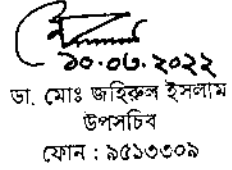 ১০.০৩.২০২২
ডা. মোঃ জহিরুল ইসলাম
উপসচিব
ফোন : ৯৫১৩৩০৯